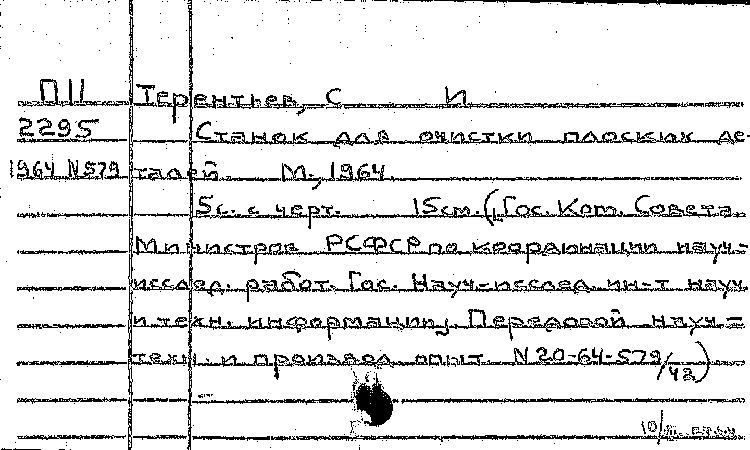 П11 Терентьев, С И
2295 Станок для очистки плоских де-
1964 N579 талей. М., 1964.
5с. с черт. 15см. (Гос. Ком. Совета
Министров РСФСР по координации науч.-
исслед. работ. Гос. Науч.-исслед. ин-т науч.
и техн. информации. Передовой науч.-
техн. и производ. опыт. N 20-64-579/42)